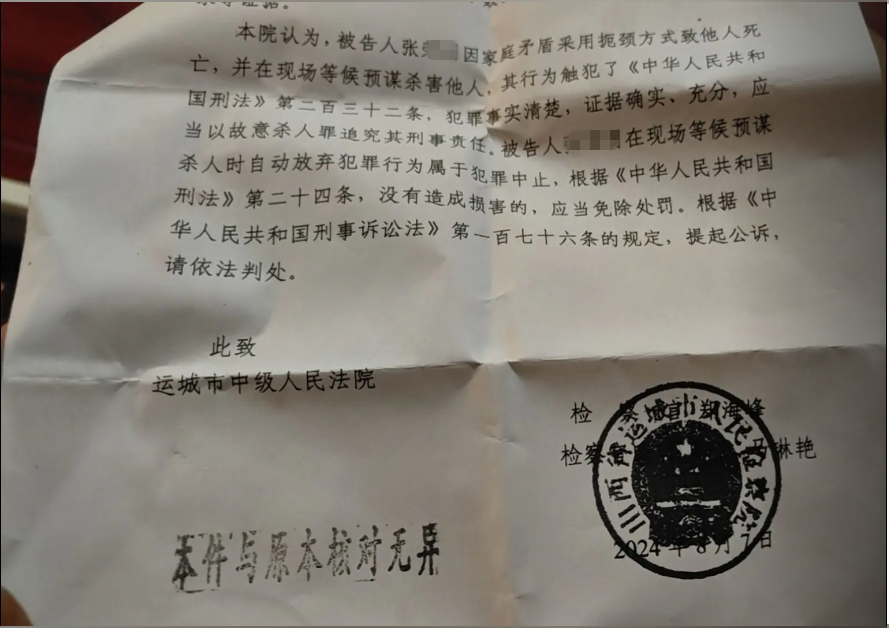 本院认为，被告人张 因家庭矛盾采用扼颈方式致他人死
亡，并在现场等候预谋杀害他人，其行为触犯了《中华人民共和
国刑法》第二百三十二条，犯罪事实清楚，证据确实、充分，应
当以故意杀人罪追究其刑事责任。被告人 在现场等候预谋
杀人时自动放弃犯罪行为属于犯罪中止，根据《中华人民共和国
刑法》第二十四条，没有造成损害的，应当免除处罚。根据《中
华人民共和国刑事诉讼法》第一百七十六条的规定，提起公诉，
请依法判处。
此致
运城市中级人民法院
检察官 郑海峰
检察官 琳艳
山西省运城市人民检察院
2024年8月7日
本件与原本核对无异